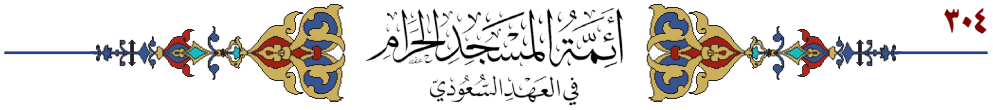 ٣٠٤
أَئِمَّةُ المَسْجِدِ الحَرَامِ
فِي العَهْدِ السُّعُودِيّ